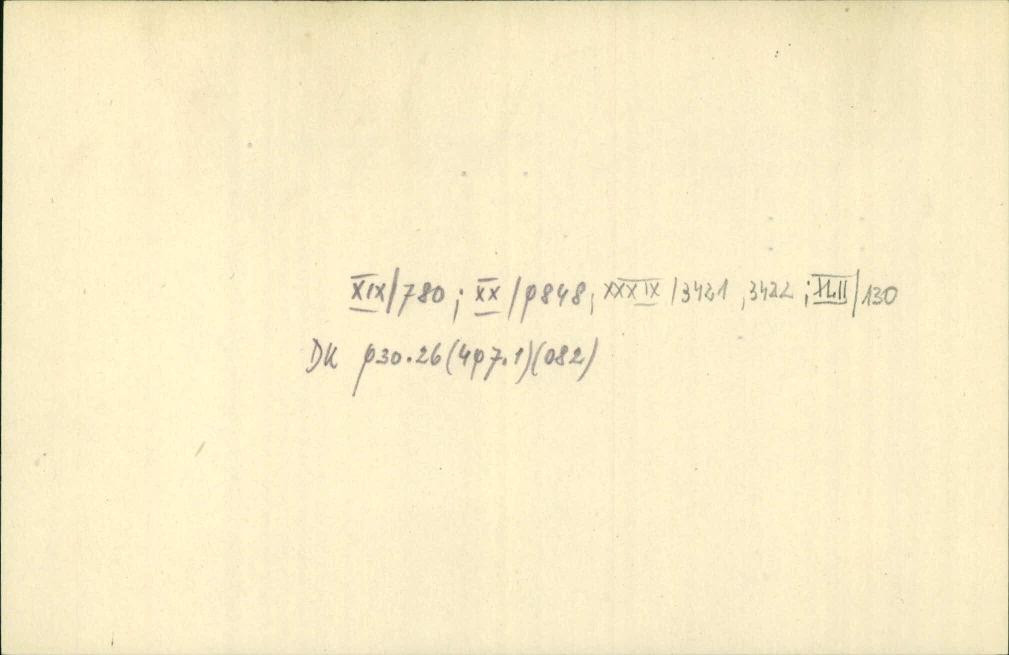 XIX/780; XX/9848, XXXIX/3421, 3422; XLII/130
DK 930.26(497.1)(082)